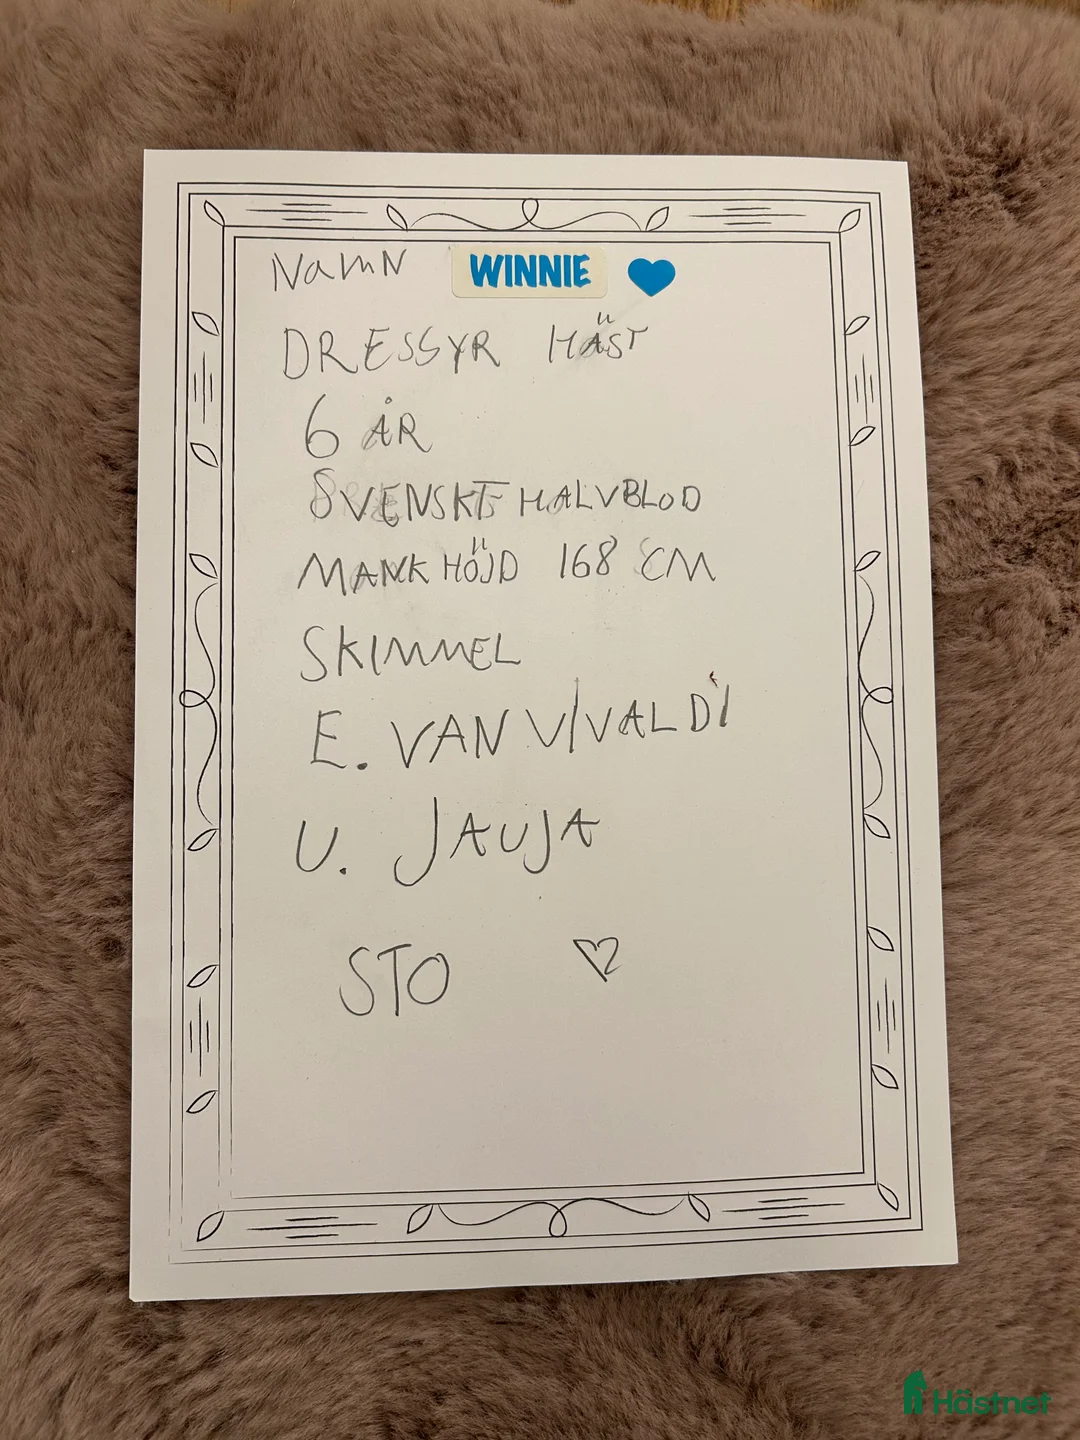 NAMN WINNIE
DRESSYR HÄST
6 ÅR
SVENSKT HALVBLOD
MANKHÖJD 168 CM
SKIMMEL
E. VAN VIVALDI
U. JAUJA
STO
Hästnet